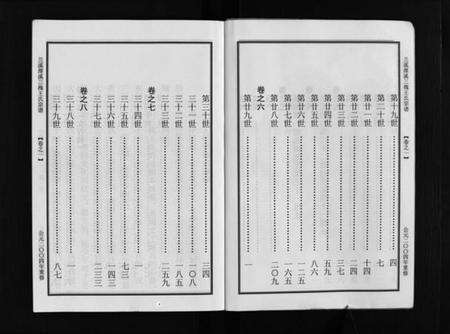 三槐王氏宗谱
【卷之一】
公元二〇〇四年重修
第十九世 四
第二十世 七
第廿一世 十四
第廿二世 二四
第廿三世 三七
第廿四世 五九
第廿五世 八六
第廿六世 一二五
第廿七世 一六五
第廿八世 二〇九
卷之六
第廿九世 一
第三十世 三四
三十一世 一〇八
三十二世 一八五
三十三世 二五九
卷之七
三十四世 一
三十五世 七三
三十六世 一四三
三十七世 二三三
卷之八
三十八世 一
三十九世 八七
三槐王氏宗谱
【卷之一】
公元二〇〇四年重修